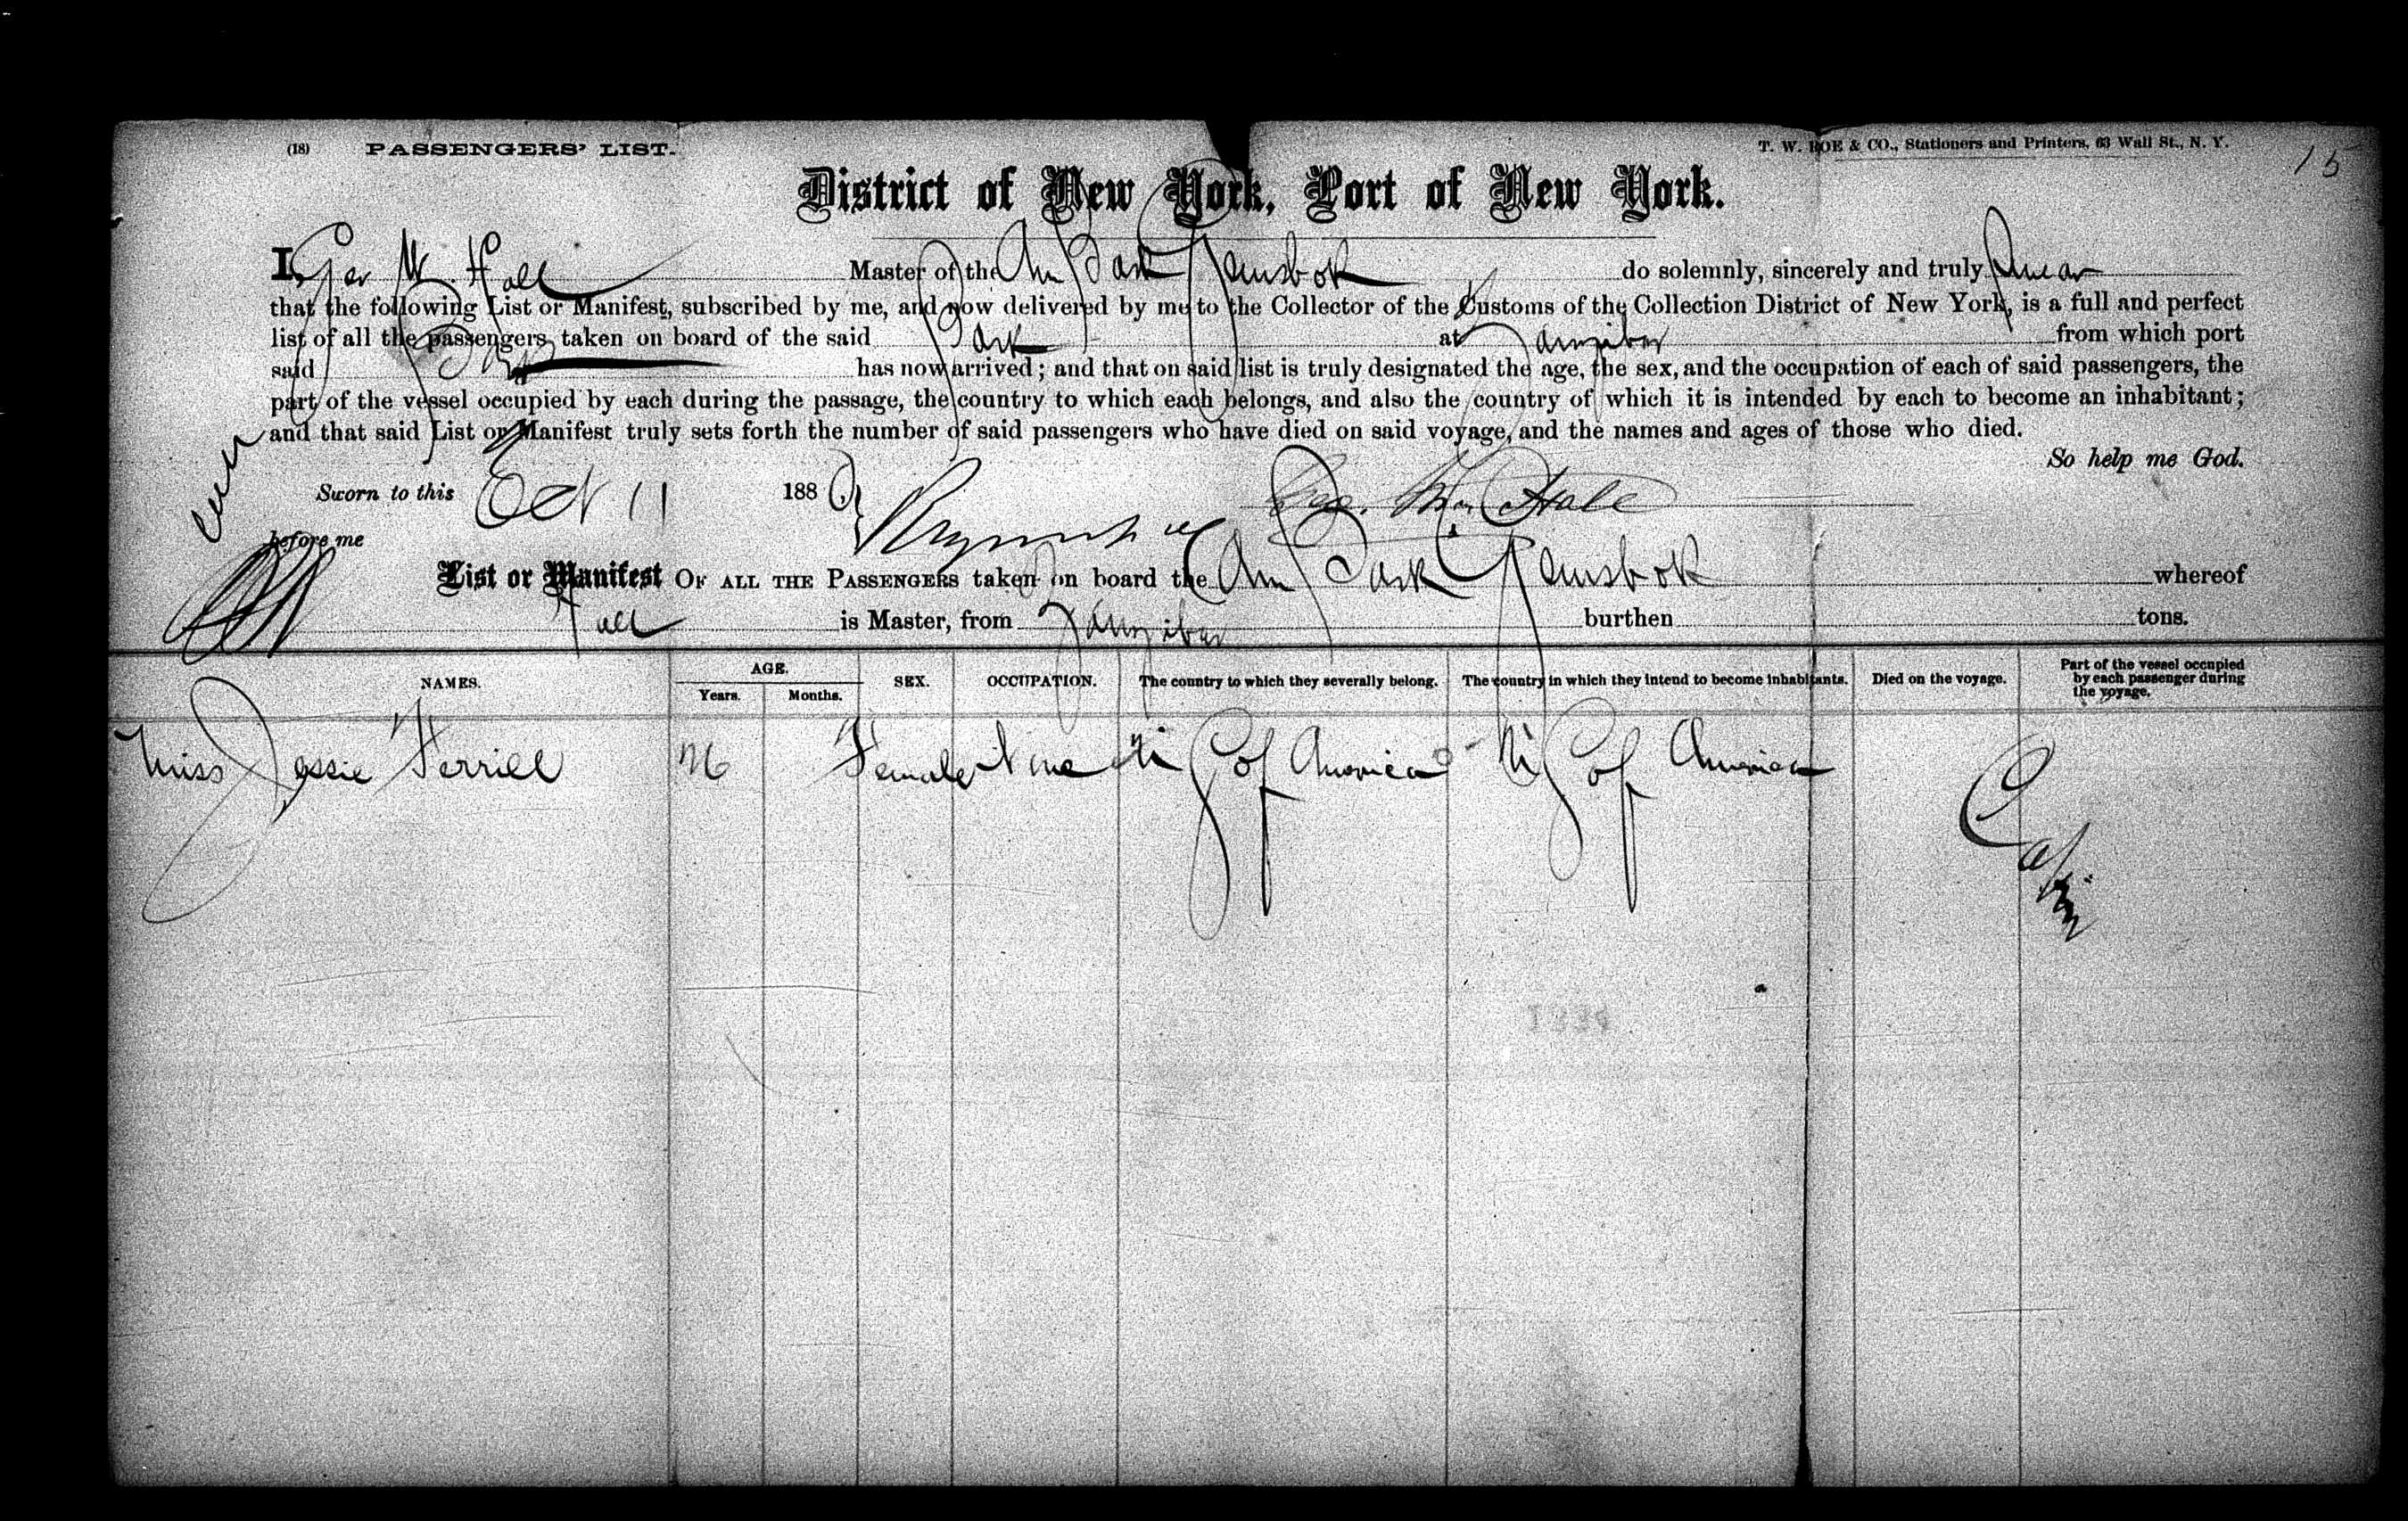 (18) PASSENGERS' LIST.
T. W. ROE & CO., Stationers and Printers, 63 Wall St., N. Y.
15
District of New York, Port of New York.
I, Geo W. Hall Master of the Am Bark Gemsbok do solemnly, sincerely and truly Swear
that the following List or Manifest, subscribed by me, and now delivered by me to the Collector of the Customs of the Collection District of New York, is a full and perfect
list of all the passengers taken on board of the said Bark at Zanzibar from which port
said Bark has now arrived; and that on said list is truly designated the age, the sex, and the occupation of each of said passengers, the
part of the vessel occupied by each during the passage, the country to which each belongs, and also the country of which it is intended by each to become an inhabitant;
and that said List or Manifest truly sets forth the number of said passengers who have died on said voyage, and the names and ages of those who died.
So help me God.
Sworn to this Oct 11 188 Geo. Wm. Hall
before me
List or Manifest OF ALL THE PASSENGERS taken on board the Am Bark Gemsbok whereof
Hall is Master, from Zanzibar burthen tons.
NAMES. AGE. Years. Months. SEX. OCCUPATION. The country to which they severally belong. The country in which they intend to become inhabitants. Died on the voyage. Part of the vessel occupied by each passenger during the voyage.
Miss Jessie Ferrill 26 Female None U S of America U S of America Cabin